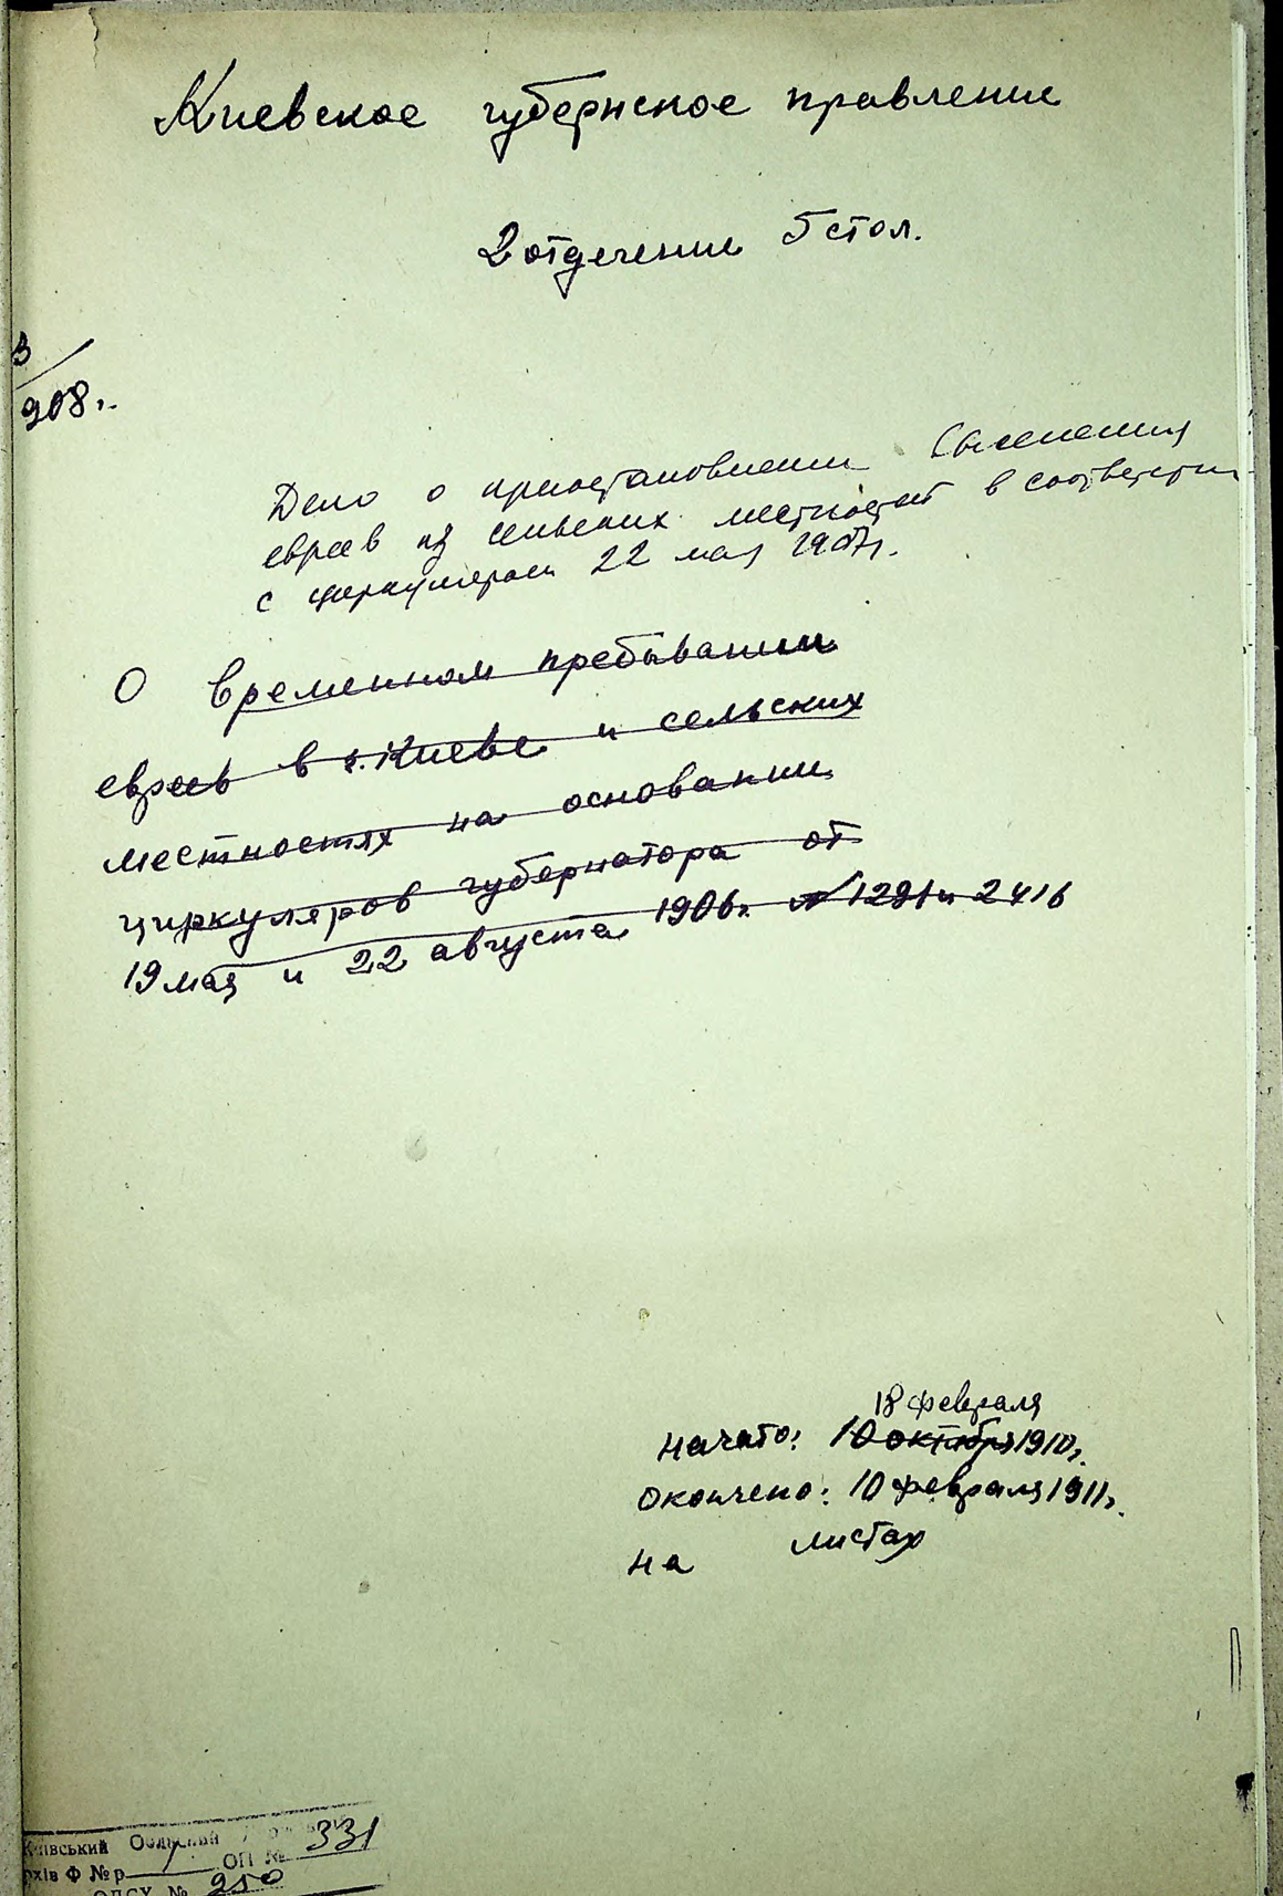 Киевское губернское правление
2 отделение 5 стол.
3/908 г.
Дело о приостановлении выселения
евреев из сельских местностей в соответствии
с циркуляром 22 мая 1907г.
О временном пребывании
евреев в г. Киеве и сельских
местностях на основании
циркуляров губернатора от
19 мая и 22 августа 1906г. № 1291 и 2416
18 февраля
начато: 10 октября 1910г.
окончено: 10 февраля 1911г.
на листах
Київський Обласний
архів Ф № р 1 ОП № 331
ОДСХ. № 250